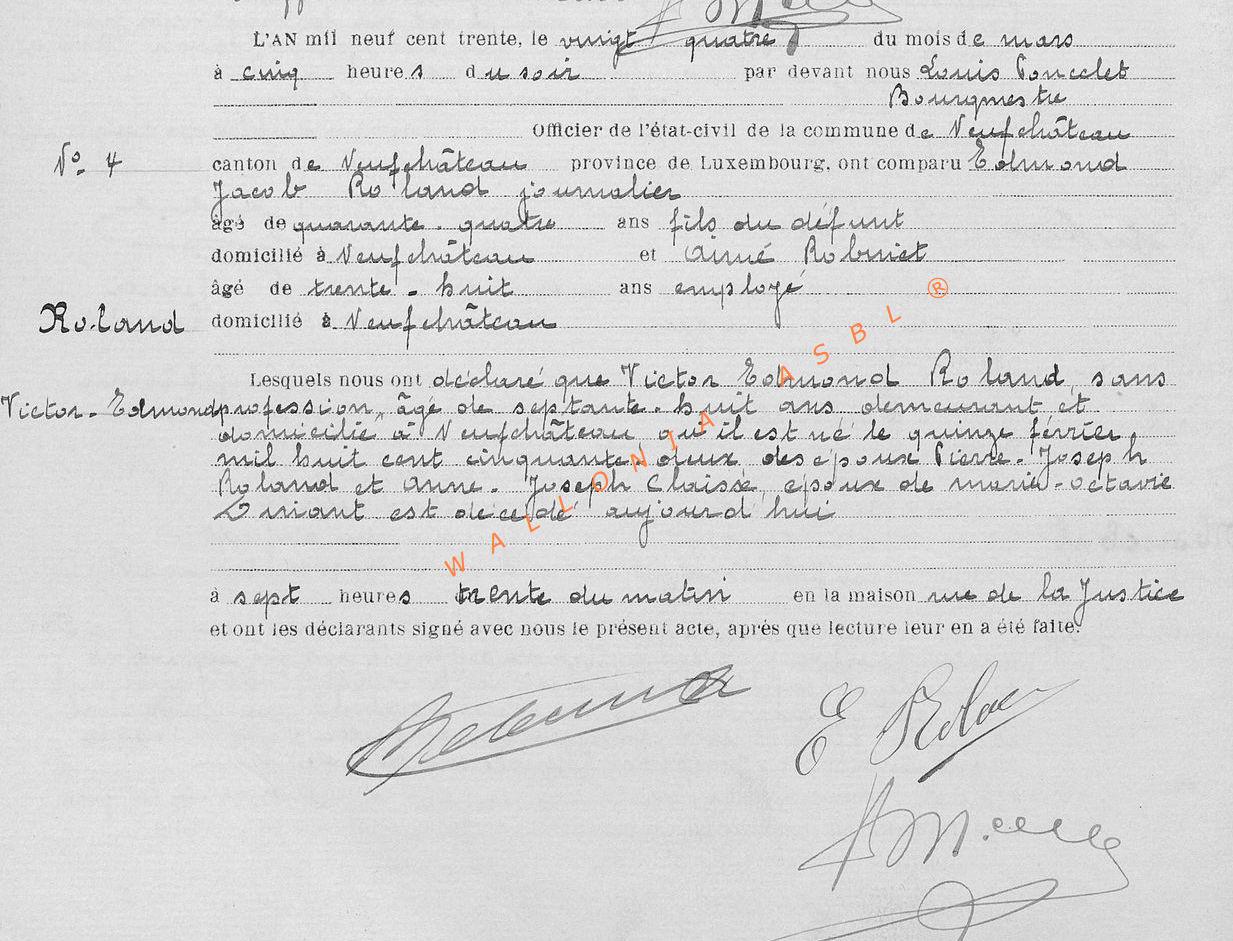 L'AN mil neuf cent trente, le vingt quatre du mois de mars
à cinq heures du soir par devant nous Louis Poncelet
Bourgmestre
Officier de l'état-civil de la commune de Neufchâteau
N° 4 canton de Neufchâteau province de Luxembourg, ont comparu Edmond
Jacob Roland journalier
âgé de quarante-quatre ans fils du défunt
domicilié à Neufchâteau et Aimé Robinet
âgé de trente-huit ans employé
Roland domicilié à Neufchâteau
Lesquels nous ont déclaré que Victor Edmond Roland, sans
Victor-Edmond profession, âgé de septante-huit ans demeurant et
domicilié à Neufchâteau, qu'il est né le quinze février
mil huit cent cinquante-deux des époux Pierre-Joseph
Roland et Anne-Joseph Claisse, époux de Marie-Octavie
Dinant est décédé aujourd'hui
à sept heures trente du matin en la maison rue de la Justice
et ont les déclarants signé avec nous le présent acte, après que lecture leur en a été faite.
E Rolan
WALLONIA ASBL ®